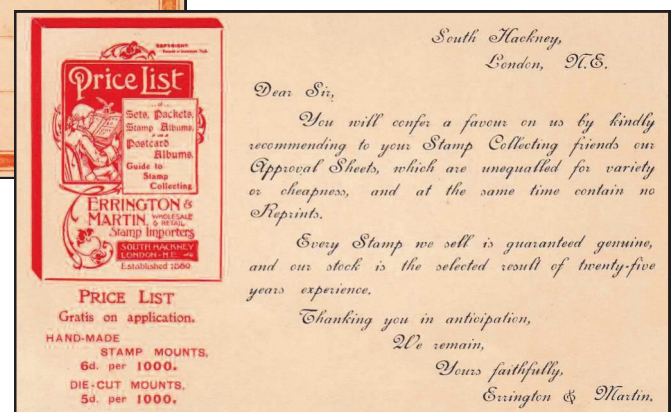 COPYRIGHT
Price List
of
Sets, Packets,
Stamp Albums,
and
Postcard
Albums.
Guide to
Stamp
Collecting
ERRINGTON &
MARTIN, WHOLESALE
& RETAIL
Stamp Importers
SOUTH HACKNEY
LONDON - N.E.
Established 1880
PRICE LIST
Gratis on application.
HAND-MADE
STAMP MOUNTS,
6d. per 1000.
DIE-CUT MOUNTS,
5d. per 1000.
South Hackney,
London, N.E.
Dear Sir,
You will confer a favour on us by kindly
recommending to your Stamp Collecting friends our
Approval Sheets, which are unequalled for variety
or cheapness, and at the same time contain no
Reprints.
Every Stamp we sell is guaranteed genuine,
and our stock is the selected result of twenty-five
years experience.
Thanking you in anticipation,
We remain,
Yours faithfully,
Errington & Martin.